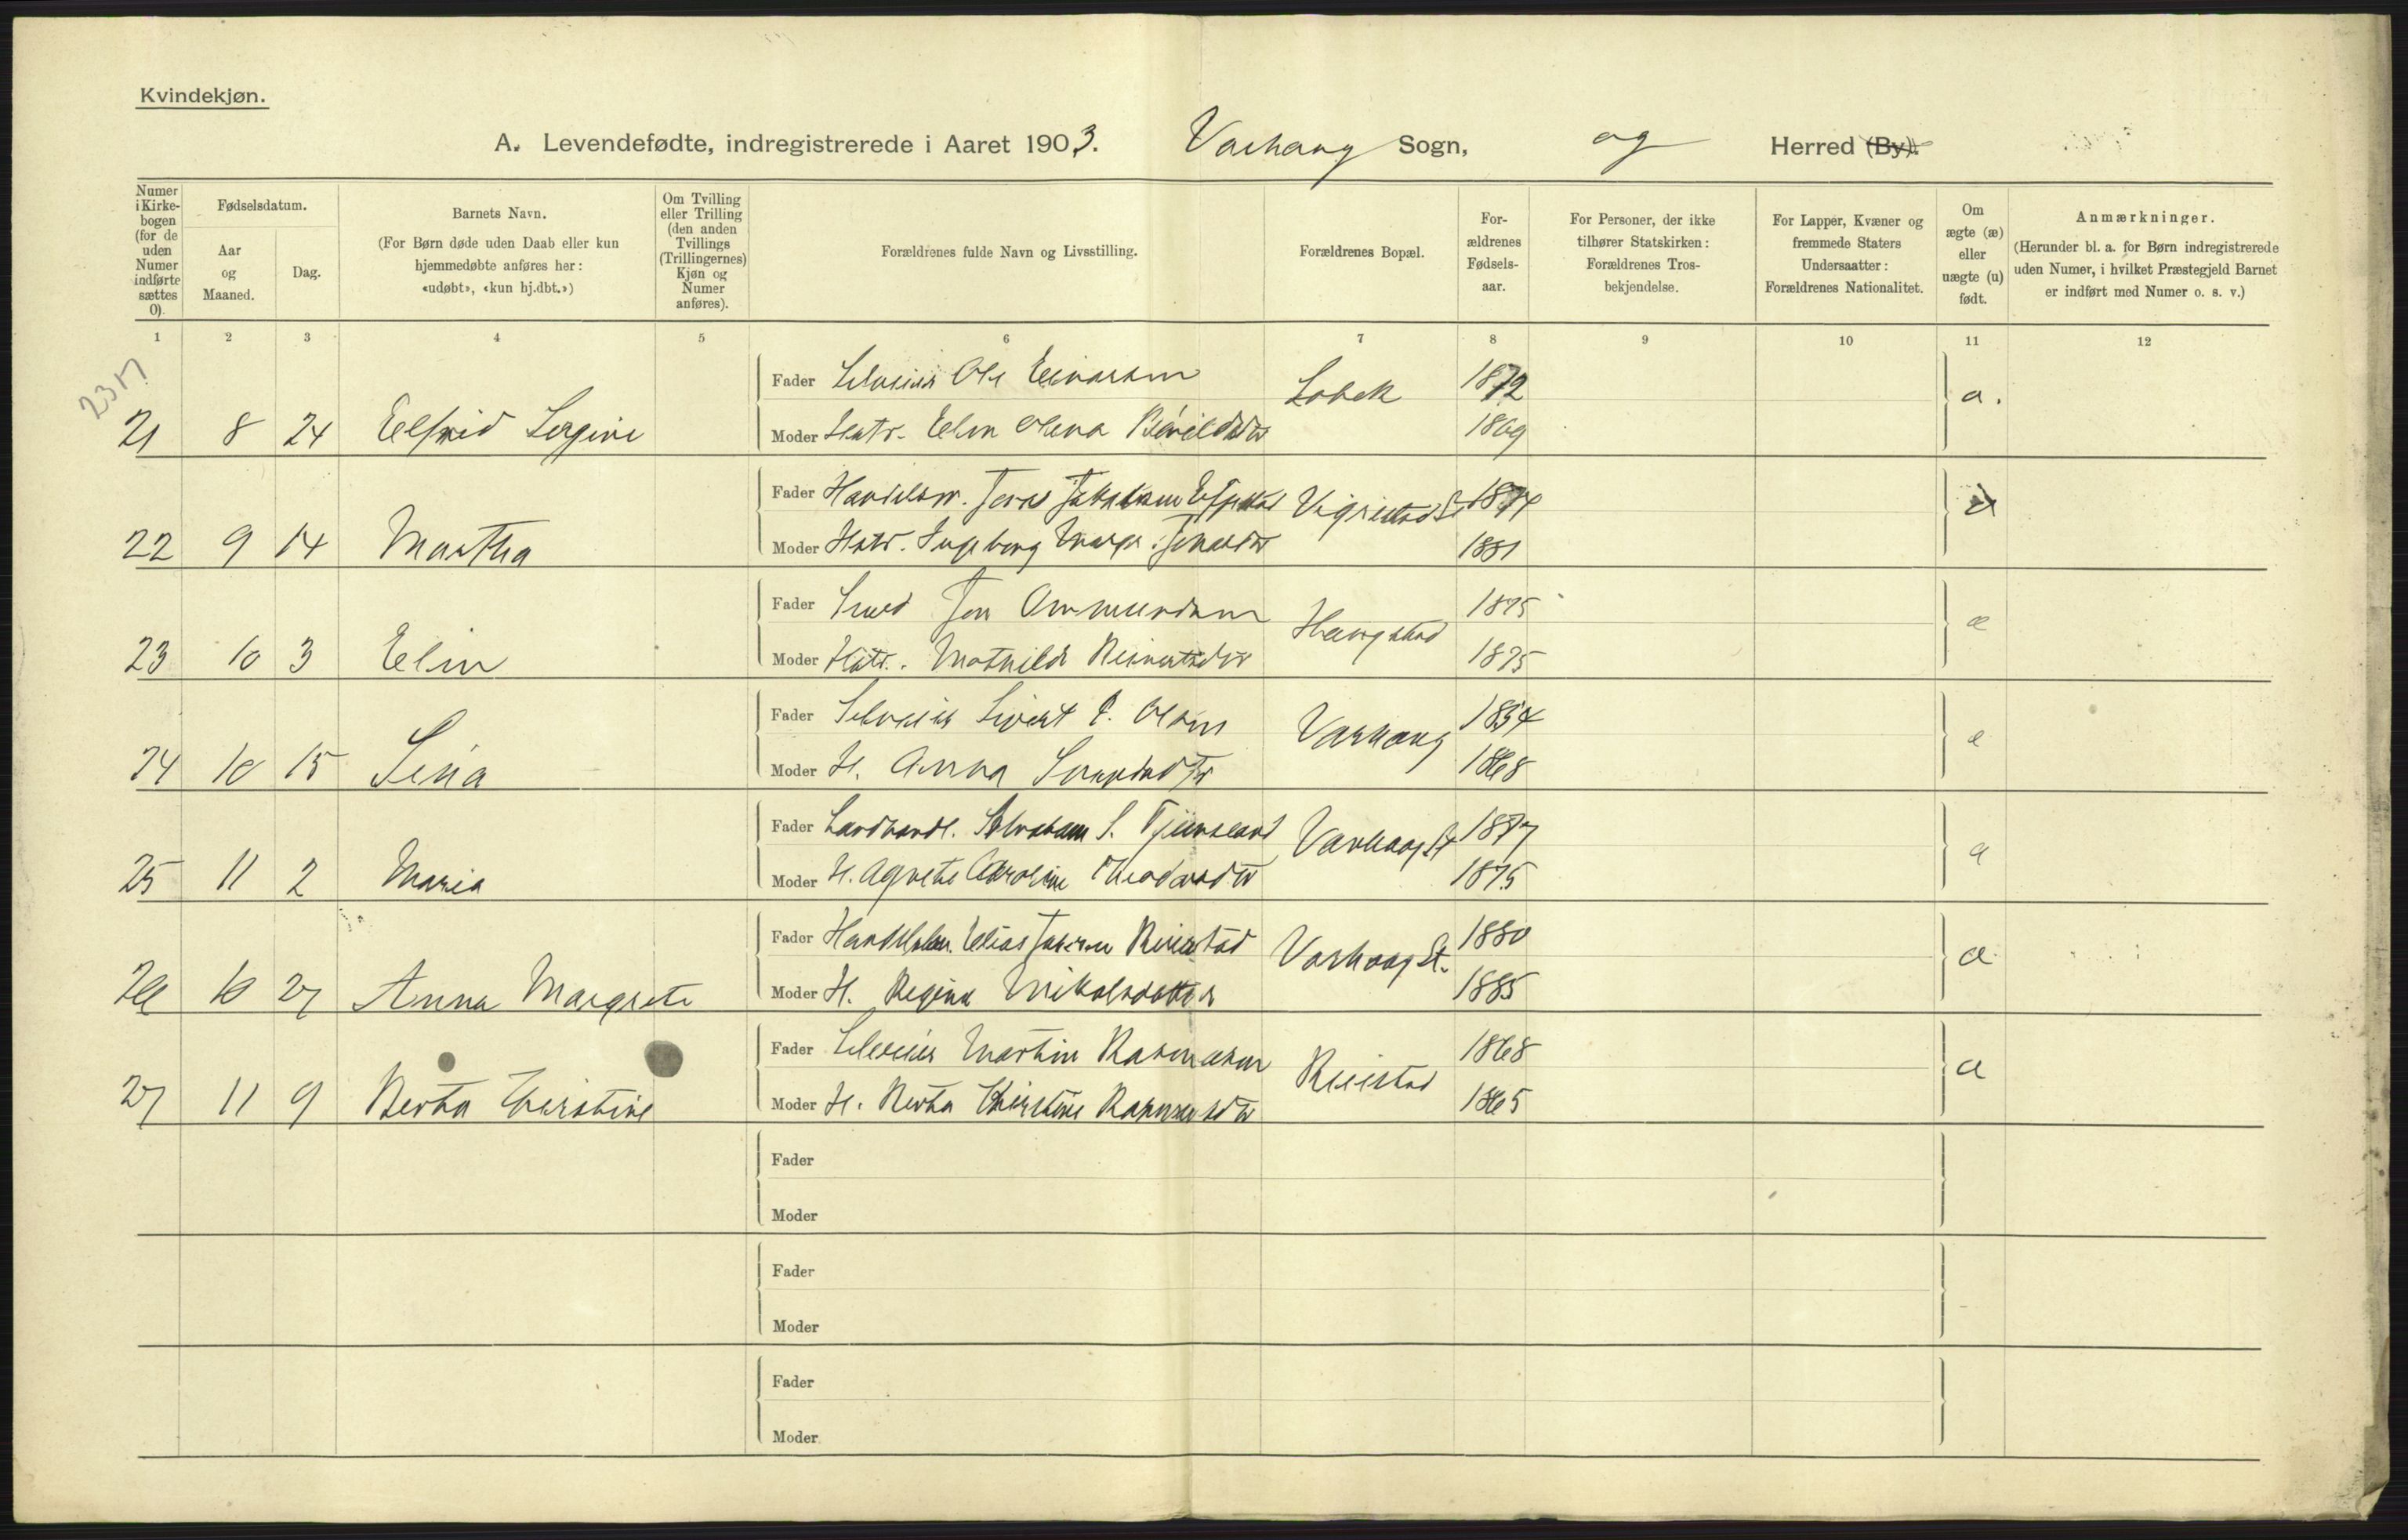 Kvindekjøn.
A. Levendefødte, indregistrerede i Aaret 1903. Varhaug Sogn, og Herred (By).
Numer i Kirkebogen (for de uden Numer indførte sættes 0).
Fødselsdatum.
Aar og Maaned.
Dag.
Barnets Navn.
(For Børn døde uden Daab eller kun hjemmedøbte anføres her: «udøbt», «kun hj.dbt.»)
Om Tvilling eller Trilling (den anden Tvillings (Trillingernes) Kjøn og Numer anføres).
Forældrenes fulde Navn og Livsstilling.
Forældrenes Bopæl.
Forældrenes Fødselsaar.
For Personer, der ikke tilhører Statskirken: Forældrenes Trosbekjendelse.
For Lapper, Kvæner og fremmede Staters Undersaatter: Forældrenes Nationalitet.
Om ægte (æ) eller uægte (u) født.
Anmærkninger.
(Herunder bl. a. for Børn indregistrerede uden Numer, i hvilket Præstegjeld Barnet er indført med Numer o. s. v.)
1 2 3 4 5 6 7 8 9 10 11 12
Fader Selveier Ole Einarsen 1872
21 8 24 Elfrid Sergine Moder Hustr. Elen Olena 1869
Fader Handelsm. Jonas 1874
22 9 14 Martha Moder Hstr. Ingeborg Marge. Jonasdtr 1881
Fader Smed Jon Ommundsen Haugstad 1875
23 10 3 Elin Moder Hstr. Mathilde Reinertsdtr 1875
Fader Selveier Sivert P. Olsen Varhaug 1854
24 10 15 Sina Moder H. Anna 1868
Fader Landhandl. Abraham S. Varhaug St 1877
25 11 2 Maria Moder H. Agnete Caroline Theodorsdtr 1875
Fader Handelsm. Elias Reiestad Varhaug St. 1880
26 10 27 Anna Margrete Moder H. Regine Mikalsdatter 1885
Fader Selveier Martin Rasmussen Reiestad 1868
27 11 9 Berta Kirstine Moder H. Berta Kirstine Rasmusdtr 1865
Fader
Moder
Fader
Moder
Fader
Moder